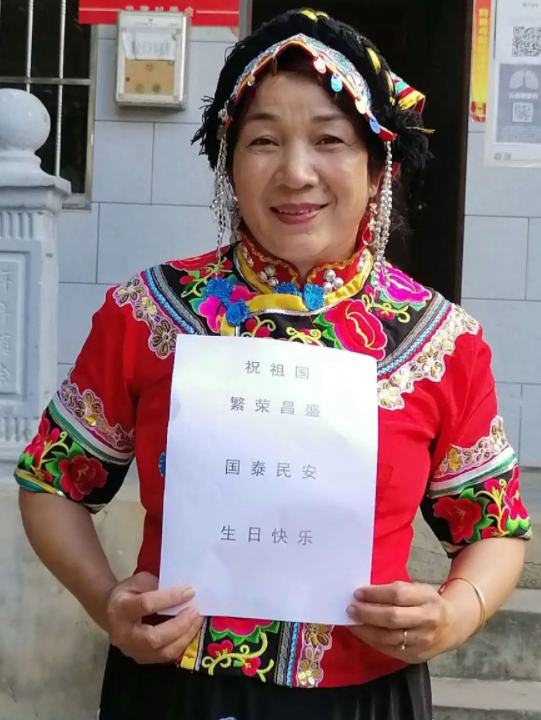 祝祖国
繁荣昌盛
国泰民安
生日快乐